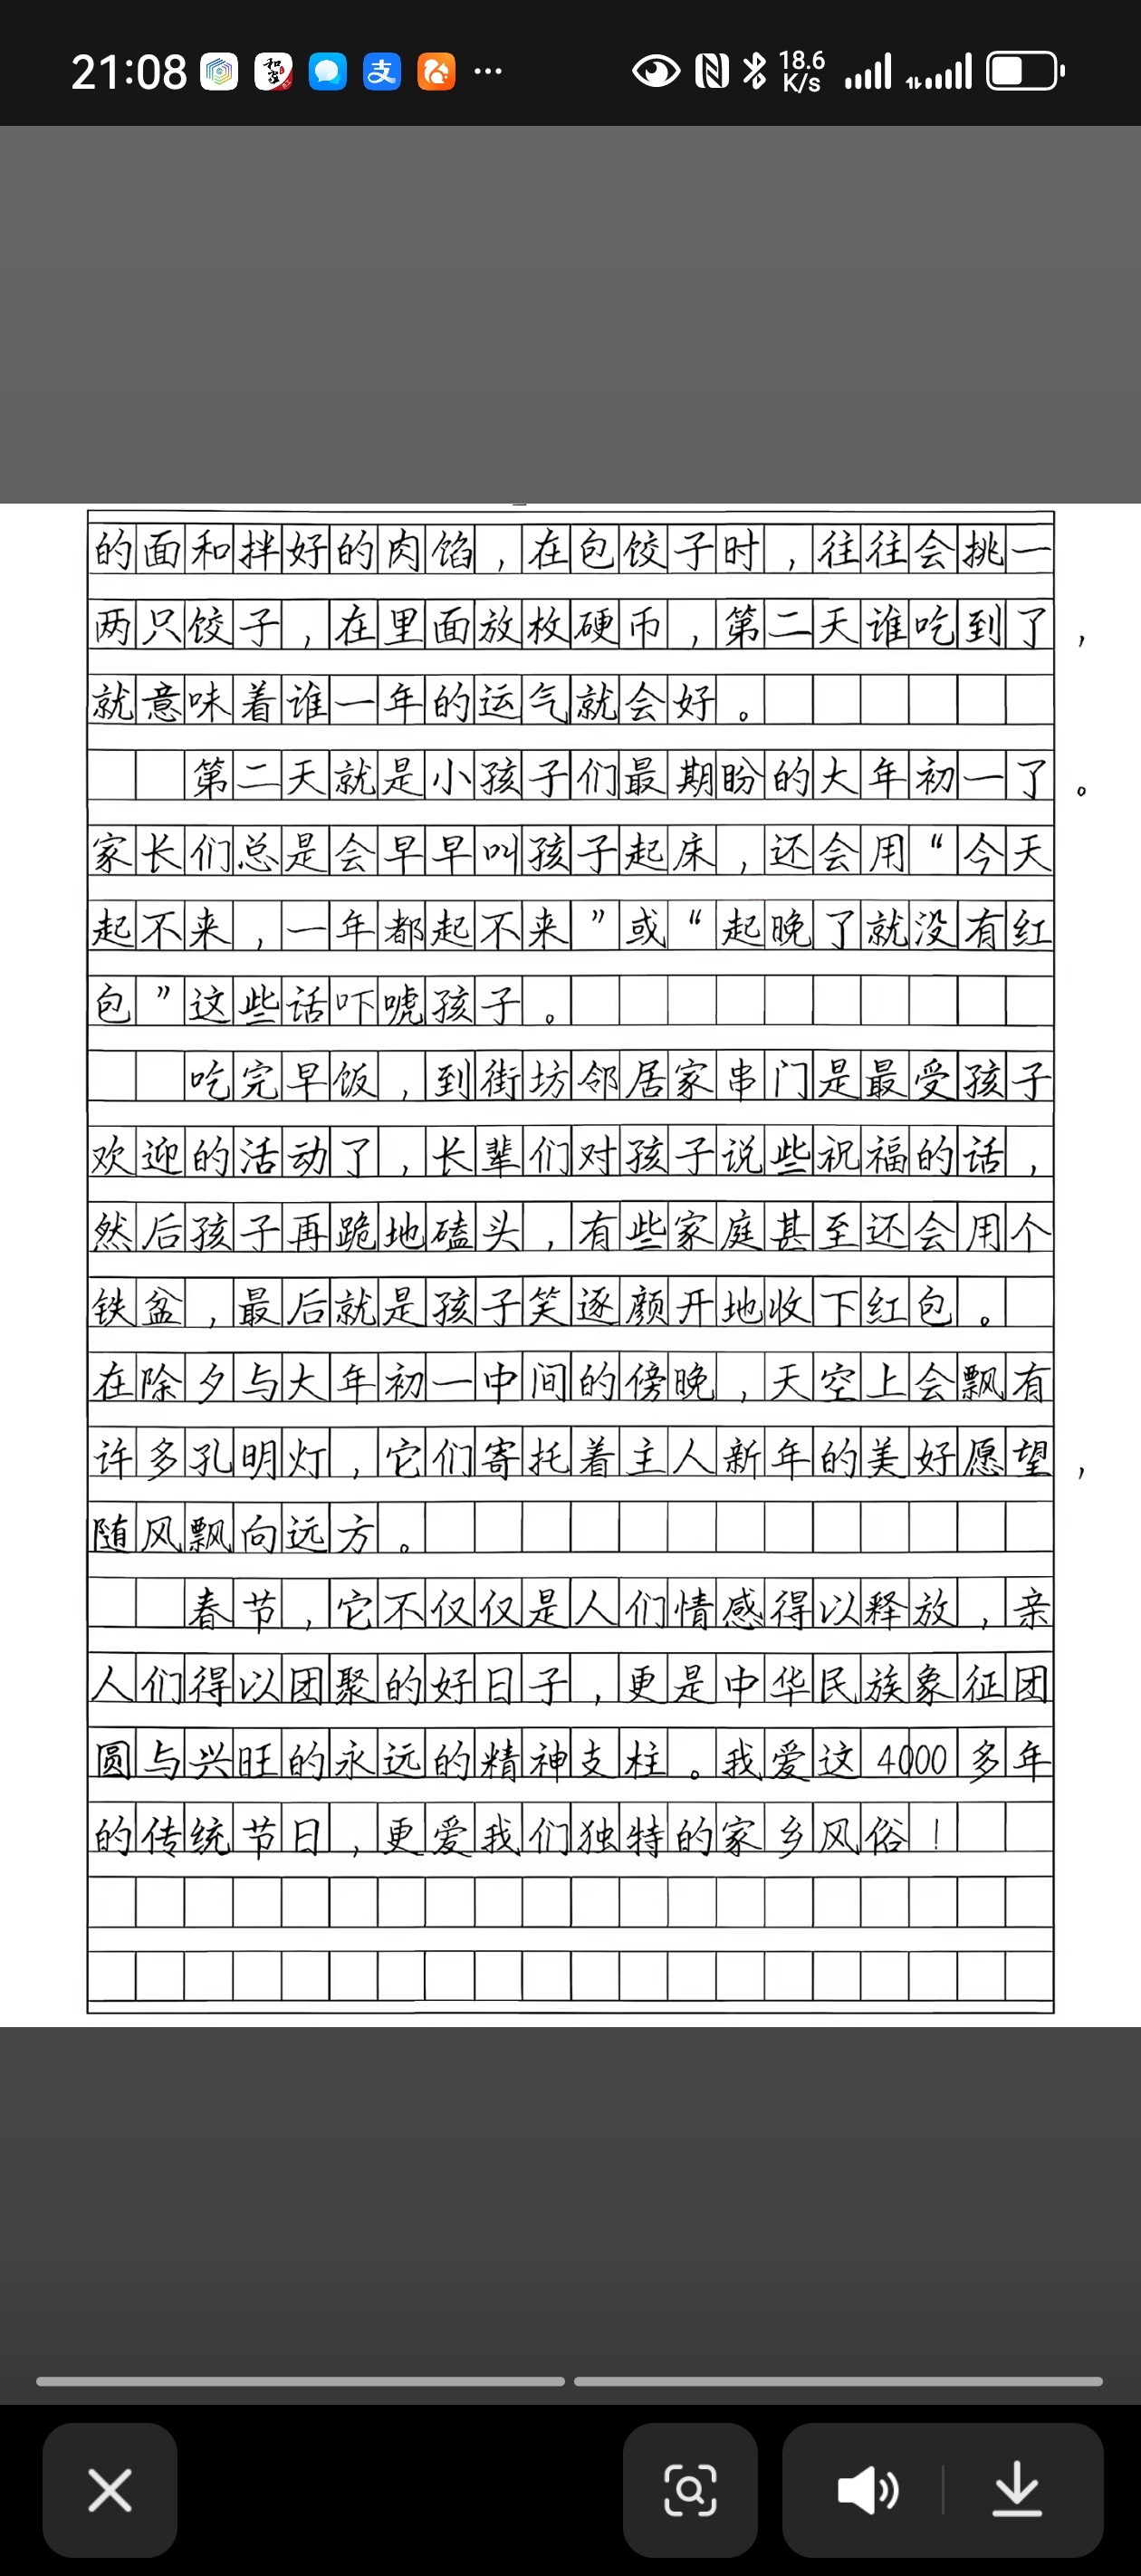 21:08
18.6
K/s
的面和拌好的肉馅，在包饺子时，往往会挑一
两只饺子，在里面放枚硬币，第二天谁吃到了，
就意味着谁一年的运气就会好。
第二天就是小孩子们最期盼的大年初一了。
家长们总是会早早叫孩子起床，还会用“今天
起不来，一年都起不来”或“起晚了就没有红
包”这些话吓唬孩子。
吃完早饭，到街坊邻居家串门是最受孩子
欢迎的活动了，长辈们对孩子说些祝福的话，
然后孩子再跪地磕头，有些家庭甚至还会用个
铁盆，最后就是孩子笑逐颜开地收下红包。
在除夕与大年初一中间的傍晚，天空上会飘有
许多孔明灯，它们寄托着主人新年的美好愿望，
随风飘向远方。
春节，它不仅仅是人们情感得以释放，亲
人们得以团聚的好日子，更是中华民族象征团
圆与兴旺的永远的精神支柱。我爱这4000多年
的传统节日，更爱我们独特的家乡风俗！